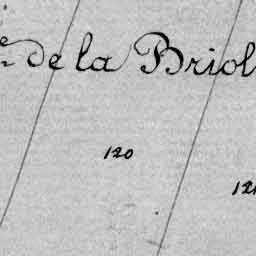 de la Briol
120